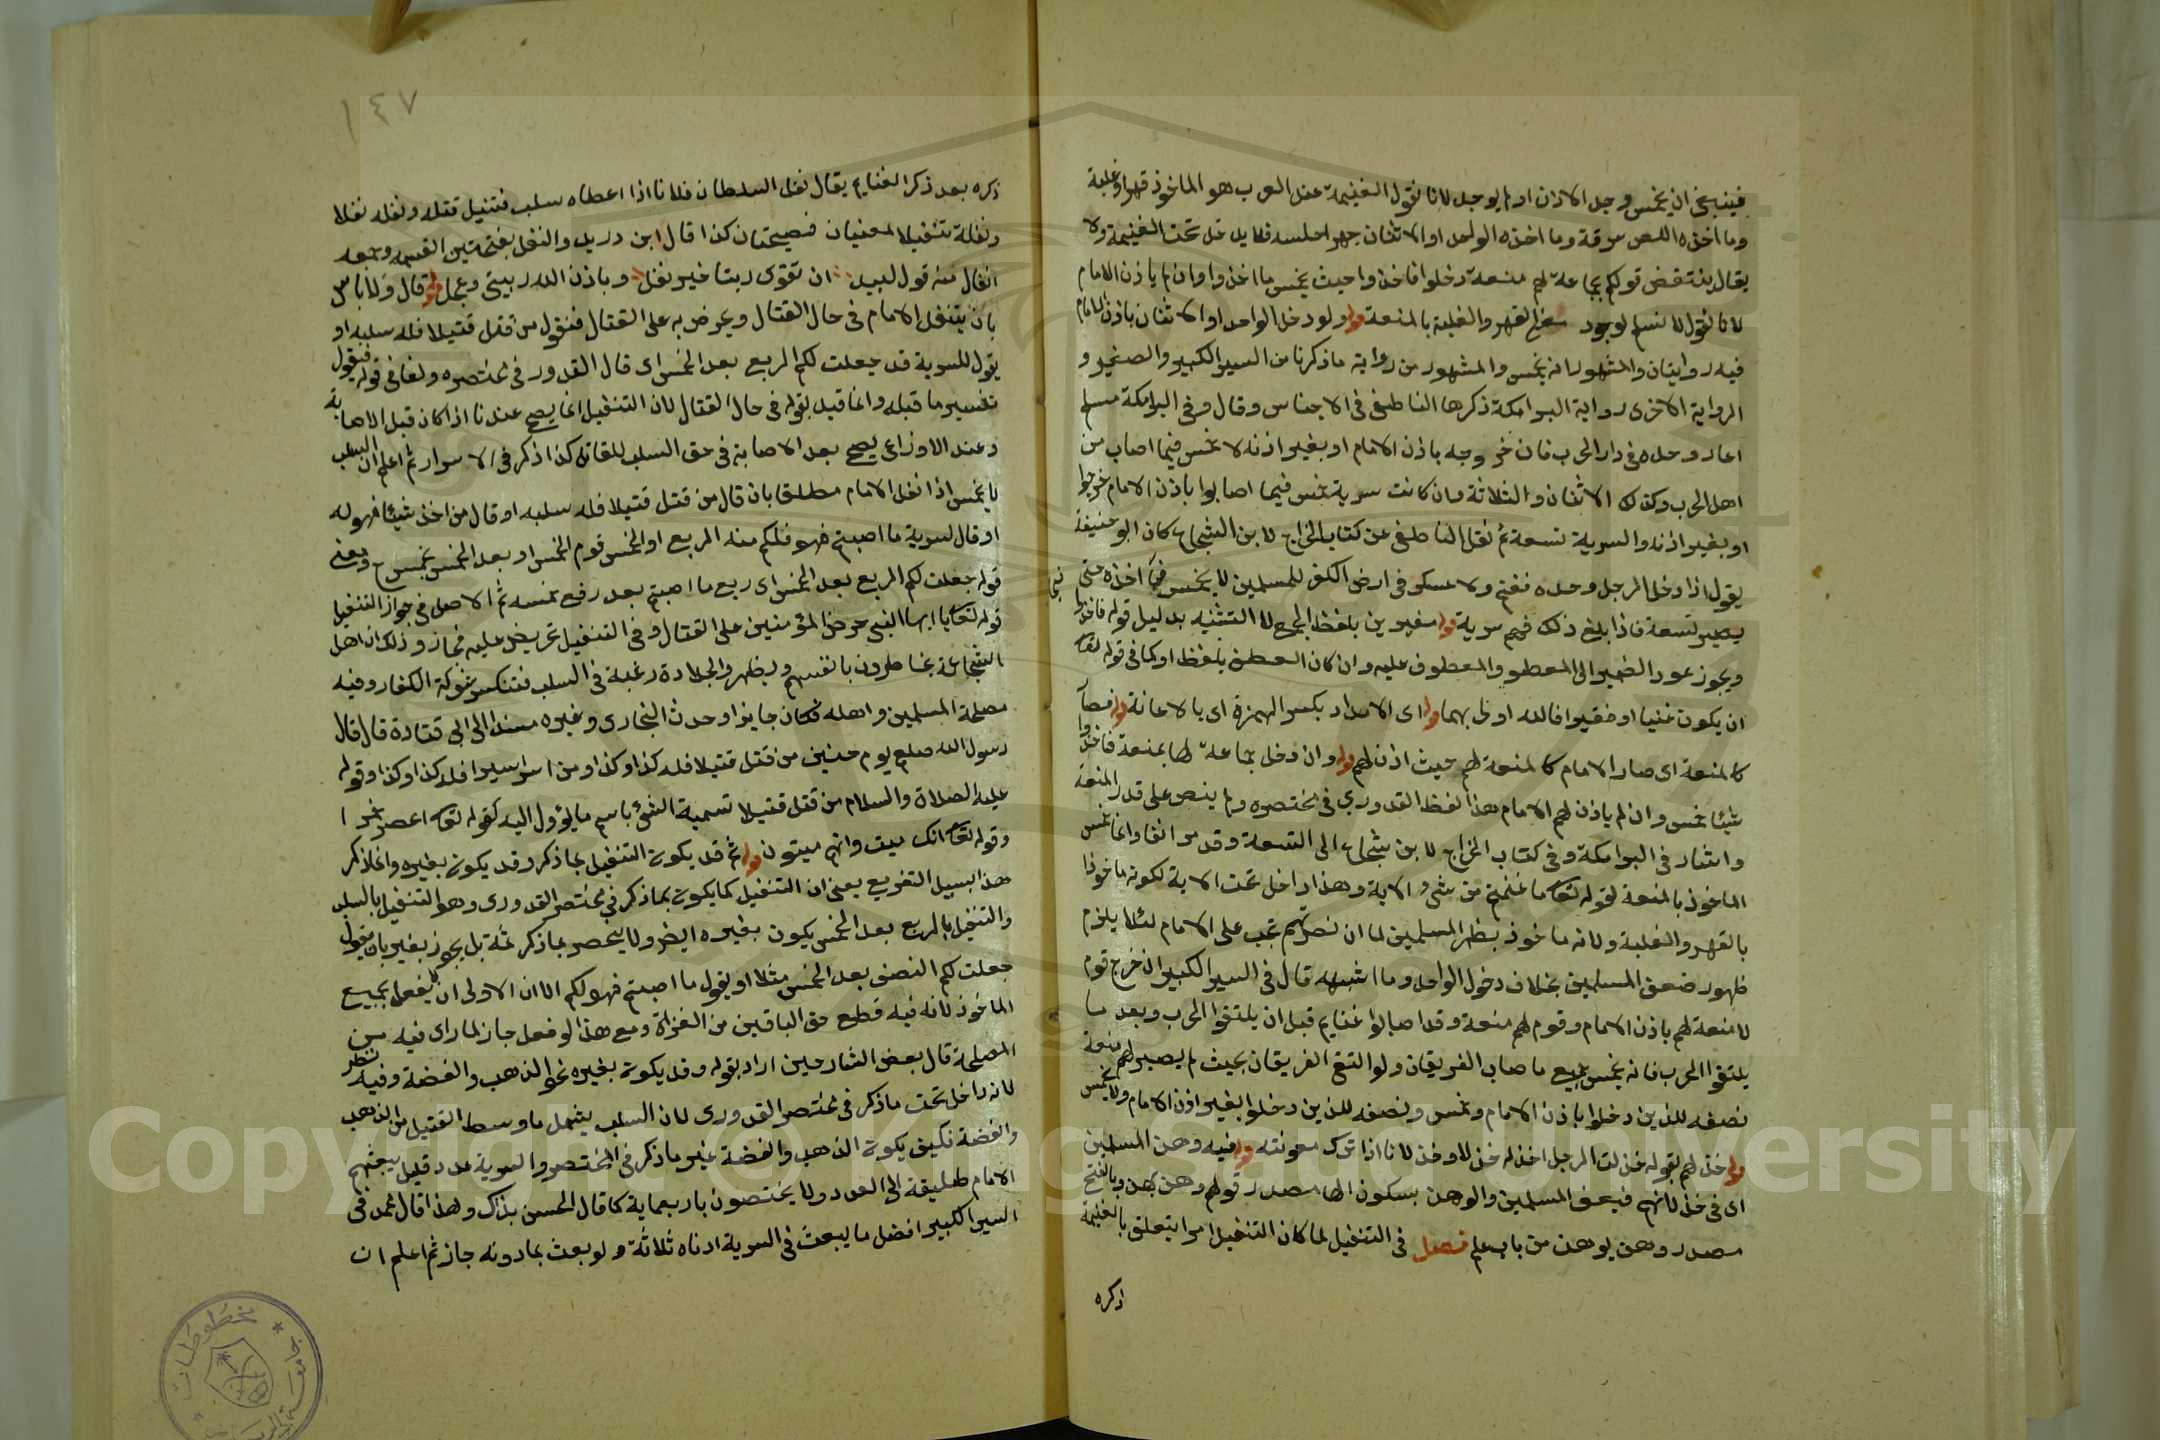 فينبغي ان يخمس وجد الاذن او لم يوجد لانا نقول الغنيمة عند العرب هو الماخوذ قهرا وغلبة
وما اخذه اللص سرقة وما اخذه الواحد او الاثنان جهرا خلسة فلا يدخل تحت الغنيمة ولا
يقال ينتقض قولكم بجماعة لهم منعة دخلوا فاخذوا حيث يخمس ما اخذوا وان لم ياذن الامام
لانا نقول لا نسلم لوجود القهر والغلبة بالمنعة قوله ولو دخل الواحد او الاثنان باذن الامام
فيه روايتان والمشهور انه يخمس والمشهور من رواية ما ذكرنا من السير الكبير والصغير و
الرواية الاخرى رواية البرامكة ذكرها الناطفي في الاجناس وقال وفي البرامكة مسلم
اغار وحده في دار الحرب فان خروجه باذن الامام او بغير اذنه لا خمس فيما اصاب من
اهل الحرب وكذلك الاثنان والثلاثة وان كانت سرية خمس فيما اصابوا باذن الامام خرجوا
او بغير اذنه والسرية تسعة ثم نقل الناطفي عن كتاب الخراج لابن الشجاع كان ابو حنيفة
يقول اذا دخل الرجل وحده فغنم ولا عسكر في ارض الكفر للمسلمين لا يخمس ما اخذه حتى
يصير تسعة فاذا بلغ ذلك فهم سرية قوله مغيرين بلفظ الجمع لا التثنية بدليل قوله فاخذوا
ويجوز عود الضمير الى المعطوف والمعطوف عليه وان كان العطف بلفظ او كما في قوله تعالى
ان يكون غنيا او فقيرا فالله اولى بهما قوله اى الامداد بكسر الهمزة اى بالاعانة قوله فصار
كالمنعة اى صار الامام كالمنعة لهم حيث اذن لهم قوله وان دخل جماعة لها منعة فاخذوا
شيئا خمس وان لم ياذن لهم الامام هذا لفظ القدوري في مختصره ولم ينص على قدر المنعة
واشار في البرامكة وفي كتاب الخراج لابن شجاع الى التسعة وقد مر انفا وانما خمس
الماخوذ بالمنعة لقوله تعالى ما غنمتم من شيء الاية وهذا داخل تحت الاية لكونه ماخوذا
بالقهر والغلبة ولانه ماخوذ بظهر المسلمين لما ان نصرتهم تجب على الامام لئلا يلزم
ظهور ضعف المسلمين بخلاف دخول الواحد وما اشبهه قال في السير الكبير ان خرج قوم
لا منعة لهم باذن الامام وقوم لهم منعة وقد اصابوا غنايم قبل ان يلتقوا الحرب وبعد ما
يلتقوا الحرب فانه يخمس جميع ما صاب الفريقان ولو التقى الفريقان بحيث لم يصير لهم منعة
نصفه للذين دخلوا باذن الامام وخمس ونصفه للذين دخلوا بغير اذن الامام ولا يخمس
قوله خذلهم بقوله خذلت الرجل اخذله خذلا وخذلانا اذا ترك معونته قوله فيه وهن المسلمين
اى في خذلانهم ضعف المسلمين والوهن بسكون الها مصدر قولهم وهن يهن وبالفتح
مصدر وهن يوهن من باب علم فصل في التنفيل لما كان التنفيل امرا يتعلق بالغنيمة
ذكره
١٤٧
ذكره بعد ذكر الغنايم يقال نفل السلطان فلانا اذا اعطاه سلب قتيل قتله ونفله نفلا
ونفله تنفيلا لمعنيان فصيحتان كذا قال ابن دريد والنفل بفتحتين القسم وجمعه
انفال منه قول لبيد ان تقوى ربنا خير نفل وباذن الله ريثي وعجل قوله قال ولا باس
بان ينفل الامام في حال القتال ويحرض به على القتال فنقول من قتل قتيلا فله سلبه او
يقول للسرية قد جعلت لكم الربع بعد الخمس اى قال القدورى في مختصره ولفا في قوله فيقول
تفسير ما قبله وانما قيد بقوله في حال القتال لان التنفيل انما يصح عندنا اذا كان قبل الاصابة
وعند الاوزاعى يصح بعد الاصابة في حق السلب للقاتل كذا ذكر في الاسرار ثم اعلم ان السلب
لا يخمس اذا نفل الامام مطلقا بان قال من قتل قتيلا فله سلبه او قال من اخذ شيئا فهو له
او قال لسرية ما اصبتم فهو فلكم منه الربع او الخمس قوم الخمس او بعد الخمس يخمس ح ومعنى
قوله جعلت لكم الربع بعد الخمس اى ربع ما اصبتم بعد رفع خمسه ثم الاصل في جواز التنفيل
قوله تعالى يا ايها النبي حرض المؤمنين على القتال وفي التنفيل تحريض عليه فجاز وذلك ان اهل
الشجاعة يخاطرون بانفسهم ويظهر والجلادة رغبة في السلب فتنكسر شوكة الكفار وفيه
مصلحة المسلمين واهله فكان جايزا وحدث البخارى وغيره مسندا الى ابى قتادة قال قال
رسول الله صلعم يوم حنين من قتل قتيلا فله كذا وكذا ومن اسر اسيرا فله كذا وكذا وقوله
عليه الصلاة والسلام من قتل قتيلا تسمية الشئ باسم ما يؤول اليه كقوله تعالى اعصر خمرا
وقوله تعالى انك ميت وانهم ميتون قوله ثم قد يكون التنفيل بما ذكر وقد يكون بغيره وانما ذكر
هذا بسبيل التفريع يعنى ان التنفيل كما يكون بما ذكر في مختصر القدورى وهو التنفيل بالسلب
والتنفيل بالربع بعد الخمس يكون بغيره ايضا ولا ينحصر بما ذكر ثمة بل يجوز بغيره بان يقول
جعلت لكم النصف بعد الخمس مثلا او يقول ما اصبتم فهو لكم الا ان الاولى ان لا يفعل بجميع
الماخوذ لانه فيه قطع حق الباقين من الغزاة ومع هذا لو فعل جاز لما راى فيه من
المصلحة قال بعض الشارحين اراد بقوله وقد يكون بغيره نحو الذهب والفضة وفيه نظر
لانه داخل تحت ما ذكر في مختصر القدورى لان السلب يشمل ما وسط القتيل من الذهب
والفضة فكيف يكون الذهب والفضة غير ما ذكر في المختصر والسرية عدد قليل يبعثهم
الامام طليقة الى العدو ولا يختصون باربعماية كما قال الحسن بذلك ولهذا قال محمد في
السير الكبير افضل ما يبعث في السرية ادناه ثلاثة ولو بعث بما دونه جاز ثم اعلم ان
Copyright © King Saud University